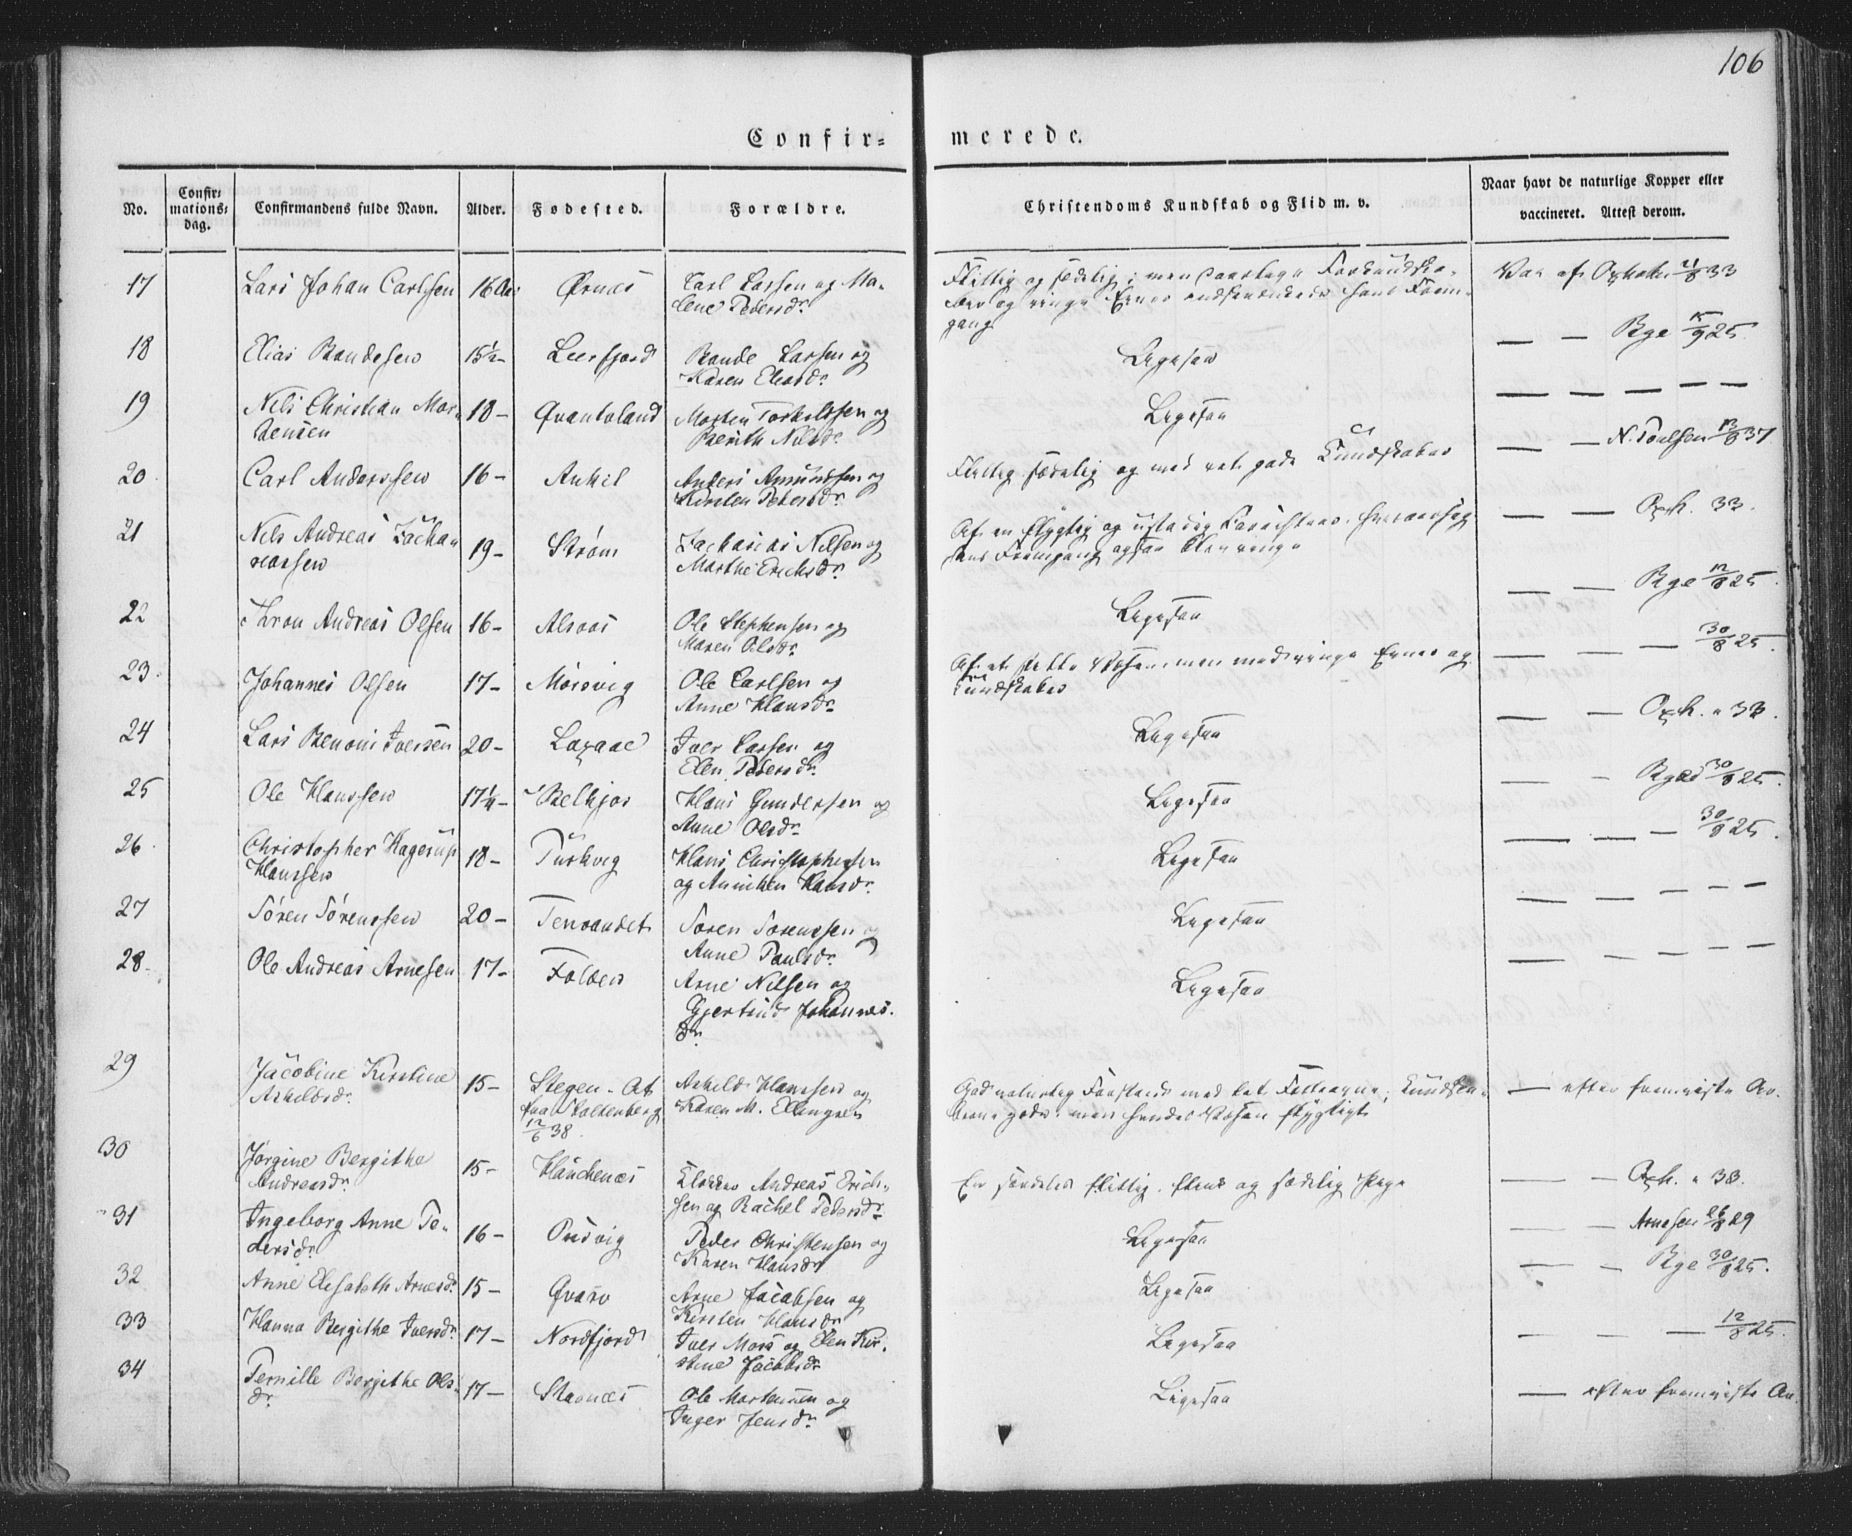 106
Confir=
merede.
No.
Confir=
mations=
dag.
Confirmandens fulde Navn.
Alder.
Fødested.
Forældre.
Christendoms Kundskab og Flid m. v.
Naar havt de naturlige Kopper eller
vaccineret. Attest derom.
17 Lars Johan Carlsen 16 Aar Ørnes Carl Larsen og Ma-
lene Pedersdr
Flittig og sædelig; men
og ringe Evner hans Frem-
gang
Vac. af 33
18 Elias Randesen 15½ - Leerfjord Rande Larsen og
Karen Eliasdr
Ligesaa
— — Bge 25
19 Nels Christian Mor-
tensen 18 - Qvantoland Morten Torkelssen og
Berith Nilsdr
Ligesaa
— — — — —
20 Carl Anderssen 16 - Ankil Anders Amundsen og
Kirsten Pedersdr
Flittig, sædelig og med ret gode Kundskaber
— — N. Poulsen 37
21 Nels Andreas Zacha-
riassen 19 - Strøm Zacharias Nilsen og
Marthe Erichsdr
Af en flygtig og ustadig
Fremgang ogsaa ringe
— — 33.
22 Thron Andreas Olsen 16 - Alsaas Ole Stephensen og
Maren Olsdr
Ligesaa
— — Bge 12/8 25.
23. Johannes Olsen 17 - Morsvig Ole Carlsen og
Anne Hansdr
Af et Væsen, men med ringe Evner og
Kundskaber
— — — 30/8 25.
24 Lars Benoni Iversen 20 - Laxaae Iver Larsen og
Elen Pedersdr
Ligesaa
— — 33.
25 Ole Hanssen 17¼ - Belkjos Hans Gundersen og
Anne Olsdr
Ligesaa
— - 30/8 25.
26. Christopher Hagerup
Hanssen 18 - Turkvig Hans Christophersen
og Annichen Hansdr.
Ligesaa
— — — 30/8 25.
27 Sören Sörenssen 20 - Tenvandet Soren Sorenssen og
Anne Paulsdr.
Ligesaa
— — — — —
28. Ole Andreas Arnesen 17 - Folden Arne Nilsen og
Gjertrud Johannes-
dr
Ligesaa
— — — — —
29 Jacobine Kirstine
Arhelsdr. 15 - Stegen - At
fra Saltenberg
12/6 38. Hanssen og
Karen M. Ellingsen
God naturlig Forstand med let Fatteevne; Kundska-
berne gode; men hendes Væsen flygtigt
— efter fremviste At.
30 Jörgine Bergithe
Andreasdr. 15 - Haüchenæs Klokker Andreas Erich-
sen og Rachel Pedersdr
En særdeles flittig, og sædelig Pige
— — 38.
31 Ingeborg Anne Pe-
dersdr 16 - Pusvig Peder Christensen og
Karen Hansdr
Ligesaa
— — Arnesen 26/8 29
32 Anne Elisabeth Arnesdr. 15 - Qvarv Arne Jacobsen og
Kirsten Hansdr
Ligesaa
— — Bge 30/8 25.
33 Hanna Bergithe Iversdr. 17 - Nordfjord Iver Mors og Elen Kir-
stine Jacobsdr
Ligesaa
— — — 12/8 25.
34 Pernille Bergithe Ols-
dr. 17 - Stavnæs Ole Mortensen og
Inger Jensdr.
Ligesaa
— efter fremviste At.